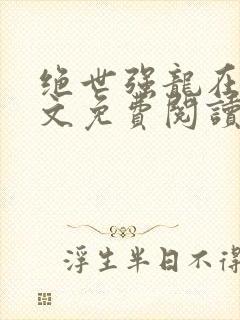 绝世强龍在
文免費閱讀
浮生半日不得